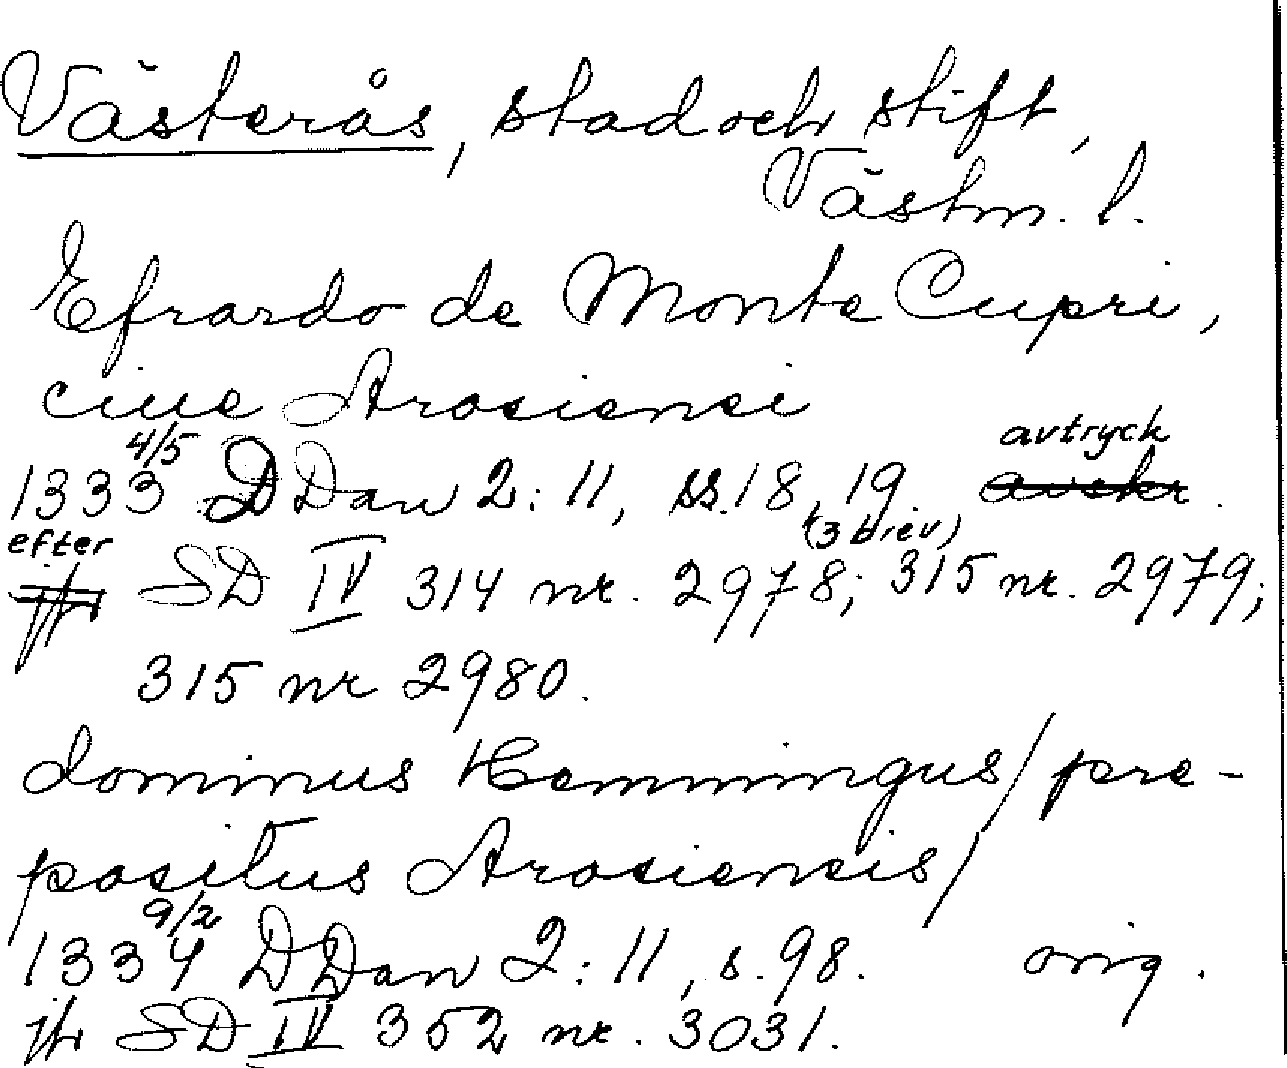 Västerås, stad och stift,
Västm. l.
Efrardo de Monte Cupri,
ciue Arosiensi
1333 4/5 DDan 2: 11, ss. 18, 19. avtryck ~~avskr~~.
(3 brev)
efter ~~jfr~~ SD IV 314 nr. 2978; 315 nr. 2979;
315 nr 2980.
dominus Hemmingus/pre-
positus Arosiensis/
1334 9/2 DDan 2: 11, s. 98. orig.
jfr SD IV 352 nr. 3031.